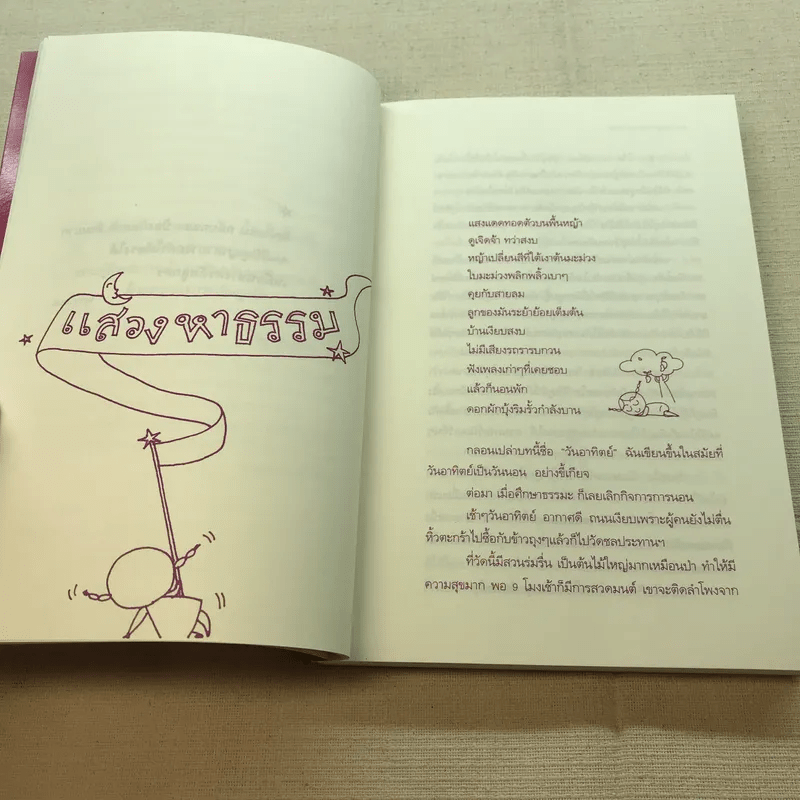 แสวงหาธรรม
แสงแดดทอดตัวบนพื้นหญ้า
ดูเจิดจ้า ทว่าสงบ
หญ้าเปลี่ยนสีที่ใต้เงาต้นมะม่วง
ใบมะม่วงพลิกพลิ้วเบาๆ
คุยกับสายลม
ลูกของมันระย้าย้อยเต็มต้น
บ้านเงียบสงบ
ไม่มีเสียงรถรารบกวน
ฟังเพลงเก่าๆที่เคยชอบ
แล้วก็นอนพัก
ดอกผักบุ้งริมรั้วกำลังบาน
กลอนเปล่าบทนี้ชื่อ "วันอาทิตย์" ฉันเขียนขึ้นในสมัยที่
วันอาทิตย์เป็นวันนอน อย่างขี้เกียจ
ต่อมา เมื่อศึกษาธรรมะ ก็เลยเลิกกิจการการนอน
เช้าๆวันอาทิตย์ อากาศดี ถนนเงียบเพราะผู้คนยังไม่ตื่น
หิ้วตะกร้าไปซื้อกับข้าวถุงๆแล้วก็ไปวัดชลประทานฯ
ที่วัดนี้มีสวนร่มรื่น เป็นต้นไม้ใหญ่มากเหมือนป่า ทำให้มี
ความสุขมาก พอ 9 โมงเช้าก็มีการสวดมนต์ เขาจะติดลำโพงจาก